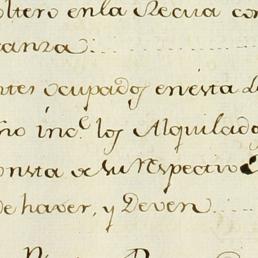 oltero en la Recua con
anza
ntes ocupados en esta d
ño inc.e los Alquilado
onsta de su respectivo
de haver, y Deven